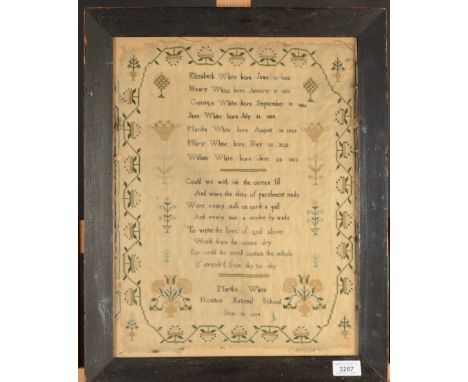 Elizabeth White born June
Henry White born January
George White born September
Jane White born July
Martha White born August
Mary White born May
William White born June
Could we with ink the ocean fill
And were the skies of parchment made
Were every stalk on earth a quill
And every man a scribe by trade
To write the love of god above
Would drain the ocean dry
Nor could the scroll contain the whole
If stretch'd from sky to sky
Martha White
National School
June
3267